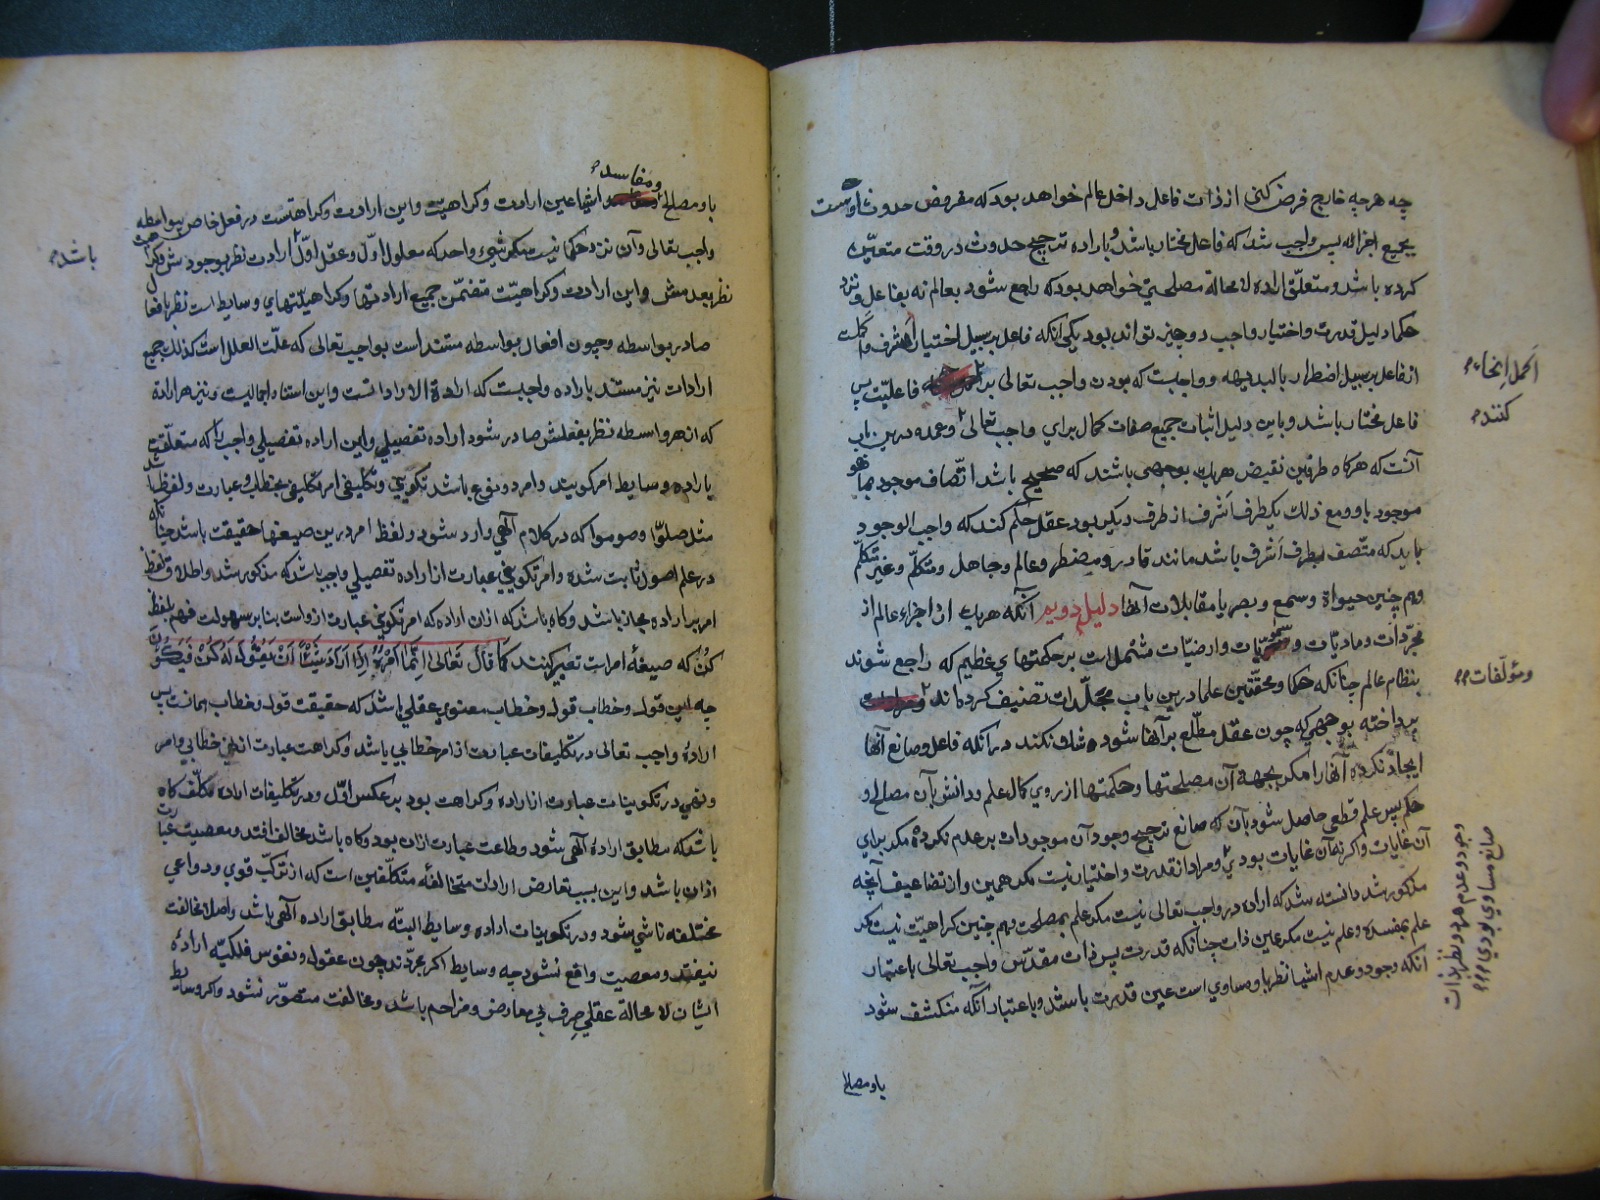 چه هرچه خارج فرض کنی از ذات فاعل داخل عالم خواهد بود که مفروض حدوث اوست
بجمیع اجزائه پس واجب شد که فاعل مختار باشد و باراده ترجیح حدوث در وقت متعیّن
کرده باشد و متعلّق اراده لا محالة مصلحتی خواهد بود که راجع شود بعالم نه بفاعل و نزد
حکما دلیل قدرت و اختیار واجب دو چیز تواند بود یکی آنکه فاعل بر سبیل اختیار اشرف و اکمل است
از فاعل بر سبیل اضطرار بالبدیهه و واجبست که بودن واجب تعالی بر فاعلیّت پس
اکمل انحاء
کننده
فاعل مختار باشد و باین دلیل اثبات جمیع صفات کمال برای واجب تعالی و عمده درین باب
آنست که هرگاه طرفین نقیض هریک بوجهی باشند که صحیح باشد اتّصاف موجود بما هو
موجود باو و مع ذلک یکطرف اشرف از طرف دیگر بود عقل حکم کند که واجب الوجود
باید که متّصف بطرف اشرف باشد مانند قادر و مضطر و عالم و جاهل و متکلّم و غیر متکلّم
و هم چنین حیوة و سمع و بصر با مقابلات آنها دلیل دویم آنکه هریک از اجزاء عالم از
مجرّدات و مادیّات و سمویّات و ارضیّات مشتمل است بر حکمتهای عظیم که راجع شوند
بنظام عالم چنانکه حکما و محقّقین علما درین باب مجلّدات تصنیف کرده اند
و مؤلّفات
پرداخته بوجهی که چون عقل مطّلع بر آنها شود شک نکند در آنکه فاعل و صانع آنها
ایجاد نکرده آنها را مگر بجهة آن مصلحتها و حکمتها از روی کمال علم و دانش بآن مصالح و
حکم پس علم قطعی حاصل شود بآن که صانع ترجیح وجود آن موجودات بر عدم نکرده مگر برای
آن غایات و اگر نه آن غایات بودی و مراد از قدرت و اختیار نیست مگر همین و از تضاعیف آنچه
وجود و عدم هر دو نظر بذات
صانع مساوی بودی
مذکور شد دانسته شد که اراده در واجب تعالی نیست مگر علم بمصلحت و هم چنین کراهیّت نیست مگر
علم بمفسده و علم نیست مگر عین ذات چنانکه قدرت پس ذات مقدّس واجب تعالی باعتبار
آنکه وجود و عدم اشیا نظر باو مساوی است عین قدرت باشد و باعتبار آنکه منکشف شود
باو مصالح
و مفاسد
باو مصالح اشیا عین ارادت و کراهیت و این ارادت و کراهتست در فعل خاص بیواسطه
واجب تعالی و آن نزد حکما نیست مگر شیء واحد که معلول اوّل و عقل اوّل ارادت نظر بوجودش و کراهت
باشد
نظر بعدمش و این ارادت و کراهیّت متضمّن جمیع ارادتها و کراهیّتهای وسایط است نظر بافعال
صادر بواسطه و چون افعال بواسطه مستند است بواجب تعالی که علّت العلل است کذلک جمیع
ارادات نیز مستند باراده واجبست که ارادة الارادتست و این استناد اجمالیست و نیز هر اراده
که از هر واسطه نظر بفعلش صادر شود اراده تفصیلی و این اراده تفصیلی واجب را که متعلّقست
باراده وسایط امر گویند و امر دو نوع باشد تکوینی و تکلیفی امر تکلیفی بخطاب و عبارت و لفظ باشد
مثل صلّوا و صوموا که در کلام الهی وارد شود و لفظ امر درین صیغها حقیقت باشد چنانکه
در علم اصول ثابت شده و امر تکوینی عبارت از اراده تفصیلی واجب باشد که مذکور شد و اطلاق لفظ
امر بر اراده مجاز باشد و گاه باشد که ازان اراده که امر تکوینی عبارت ازوست بنابر سهولت فهم بلفظ
کُن که صیغهٔ امرست تعبیر کنند کما قال تعالی اِنَّمَا اَمْرُهُ اِذَا اَرَادَ شَیْئًا اَنْ یَقُولَ لَهُ کُنْ فَیَکُونُ
چه این قول و خطاب قول و خطاب معنوی عقلی باشد که حقیقت قول و خطاب همانست پس
ارادهٔ واجب تعالی در تکلیفات عبارت از امر خطابی باشد و کراهت عبارت از نهی خطابی و امر
و نهی در تکوینات عبارت از اراده و کراهت بود بر عکس اوّل و در تکلیفات اراده مکلّف گاه
باشد که مطابق ارادهٔ الهی شود و طاعت عبارت ازان بود و گاه باشد مخالف افتد و معصیت عبارت
ازان باشد و این بسبب تعارض ارادات متخالفهٔ متکلّفین است که از ترکّب قوی و دواعی
مختلفه ناشی شود و در تکوینات اراده وسایط البتّه مطابق اراده الهی باشد و اصلا مخالفت
نیفتد و معصیت واقع نشود چه وسایط اگر مجرّدند چون عقول و نفوس فلکیّه ارادهٔ
ایشان لا محالة عقلی صِرف بی معارض و مزاحم باشد و مخالفت متصوّر نشود و اگر وسایط